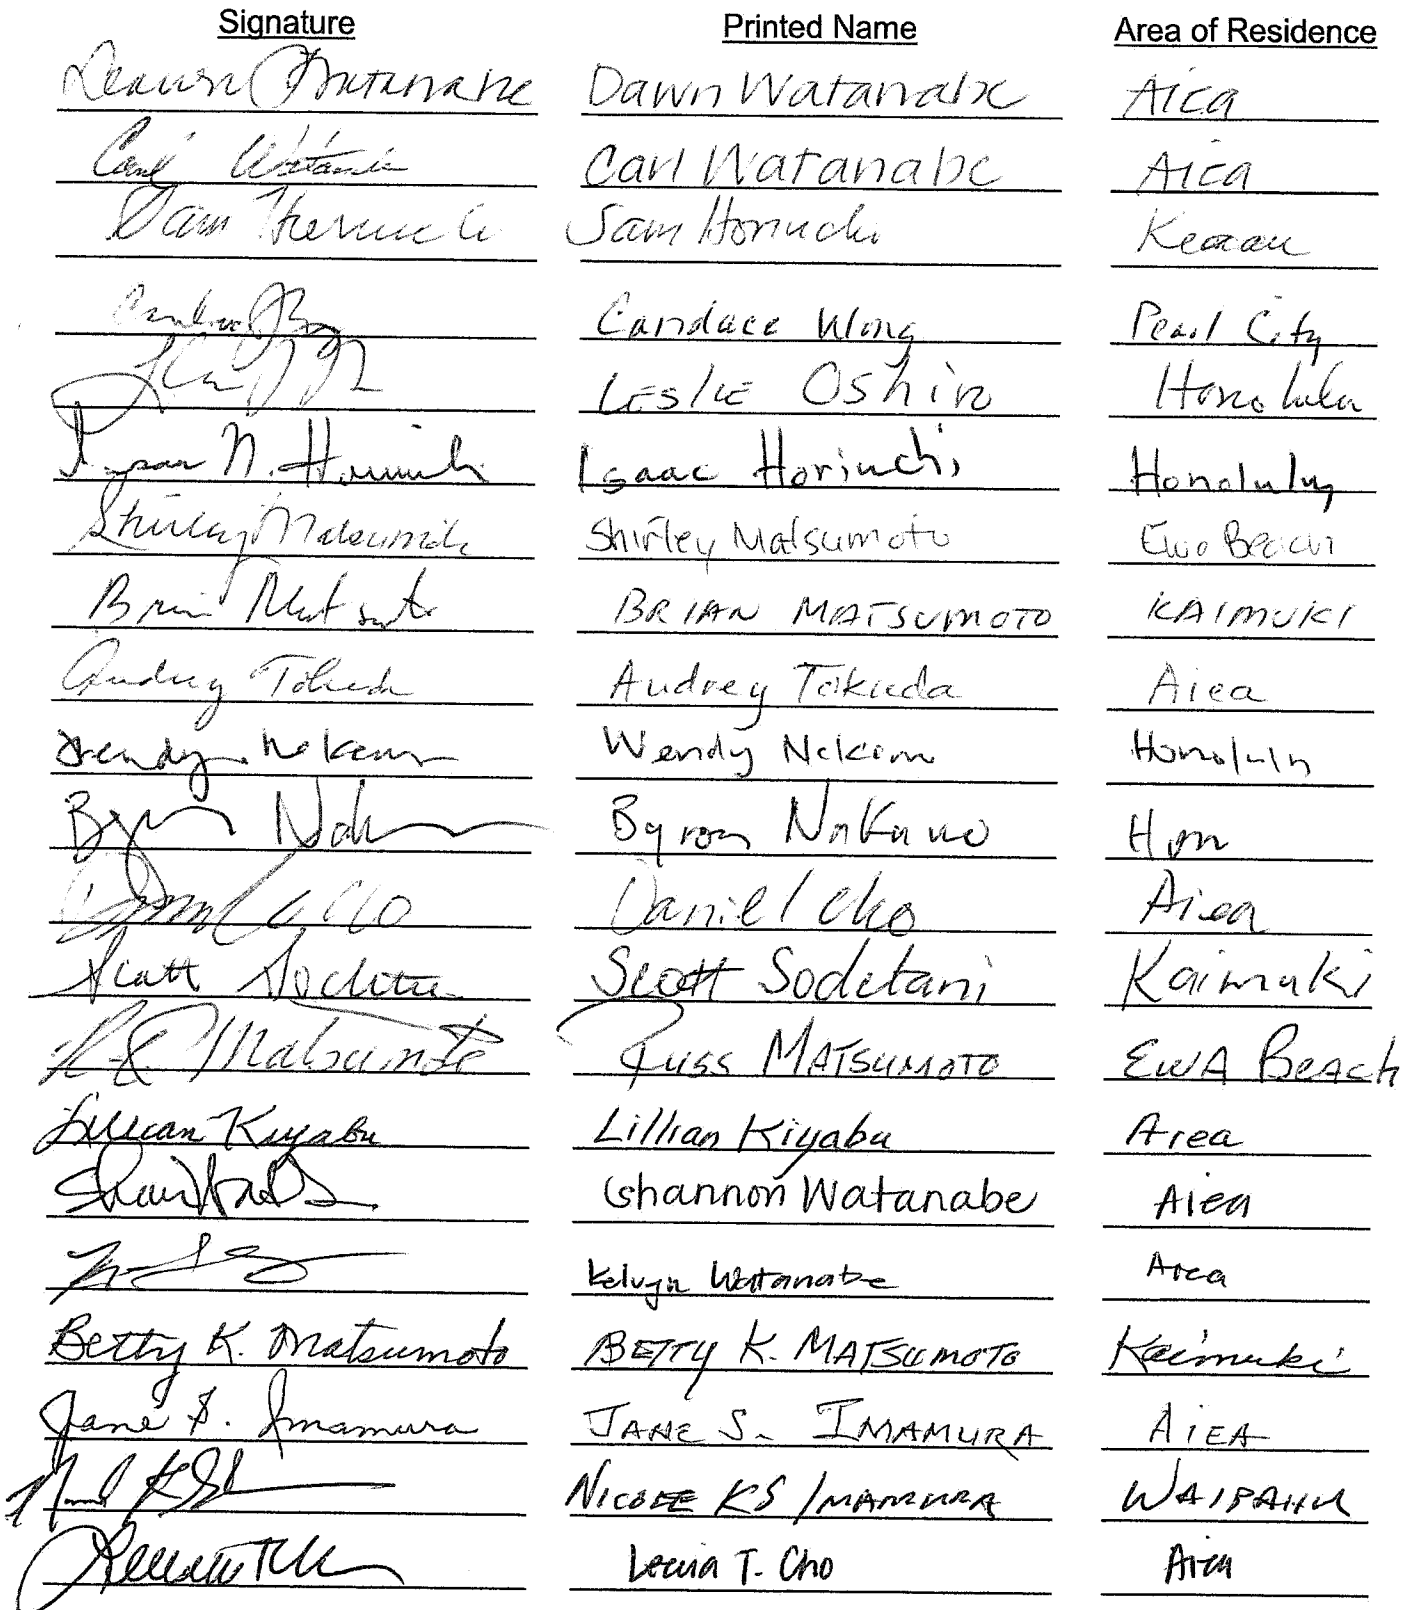 Signature Printed Name Area of Residence
Dawn Watanabe Dawn Watanabe Aiea
Carl Watanabe Carl Watanabe Aiea
Sam Horiuchi Sam Horiuchi Keaau
Candace Wong Pearl City
Leslie Oshiro Honolulu
Isaac Horiuchi Honolulu
Shirley Matsumoto Shirley Matsumoto Ewa Beach
Brian Matsumoto BRIAN MATSUMOTO KAIMUKI
Audrey Tokuda Audrey Tokuda Aiea
Wendy Nekom Wendy Nekom Honolulu
Byron Nakano Hon
Daniel Cho Aiea
Scott Sodetani Scott Sodetani Kaimuki
Matsumoto Russ MATSUMOTO EWA BEACH
Lillian Kiyabu Lillian Kiyabu Aiea
Shannon Watanabe Aiea
Kelvyn Watanabe Aiea
Betty K. Matsumoto BETTY K. MATSUMOTO Kaimuki
Jane S. Imamura JANE S. IMAMURA AIEA
NICOLE KS IMAMURA WAIPAHU
T. Cho Aiea